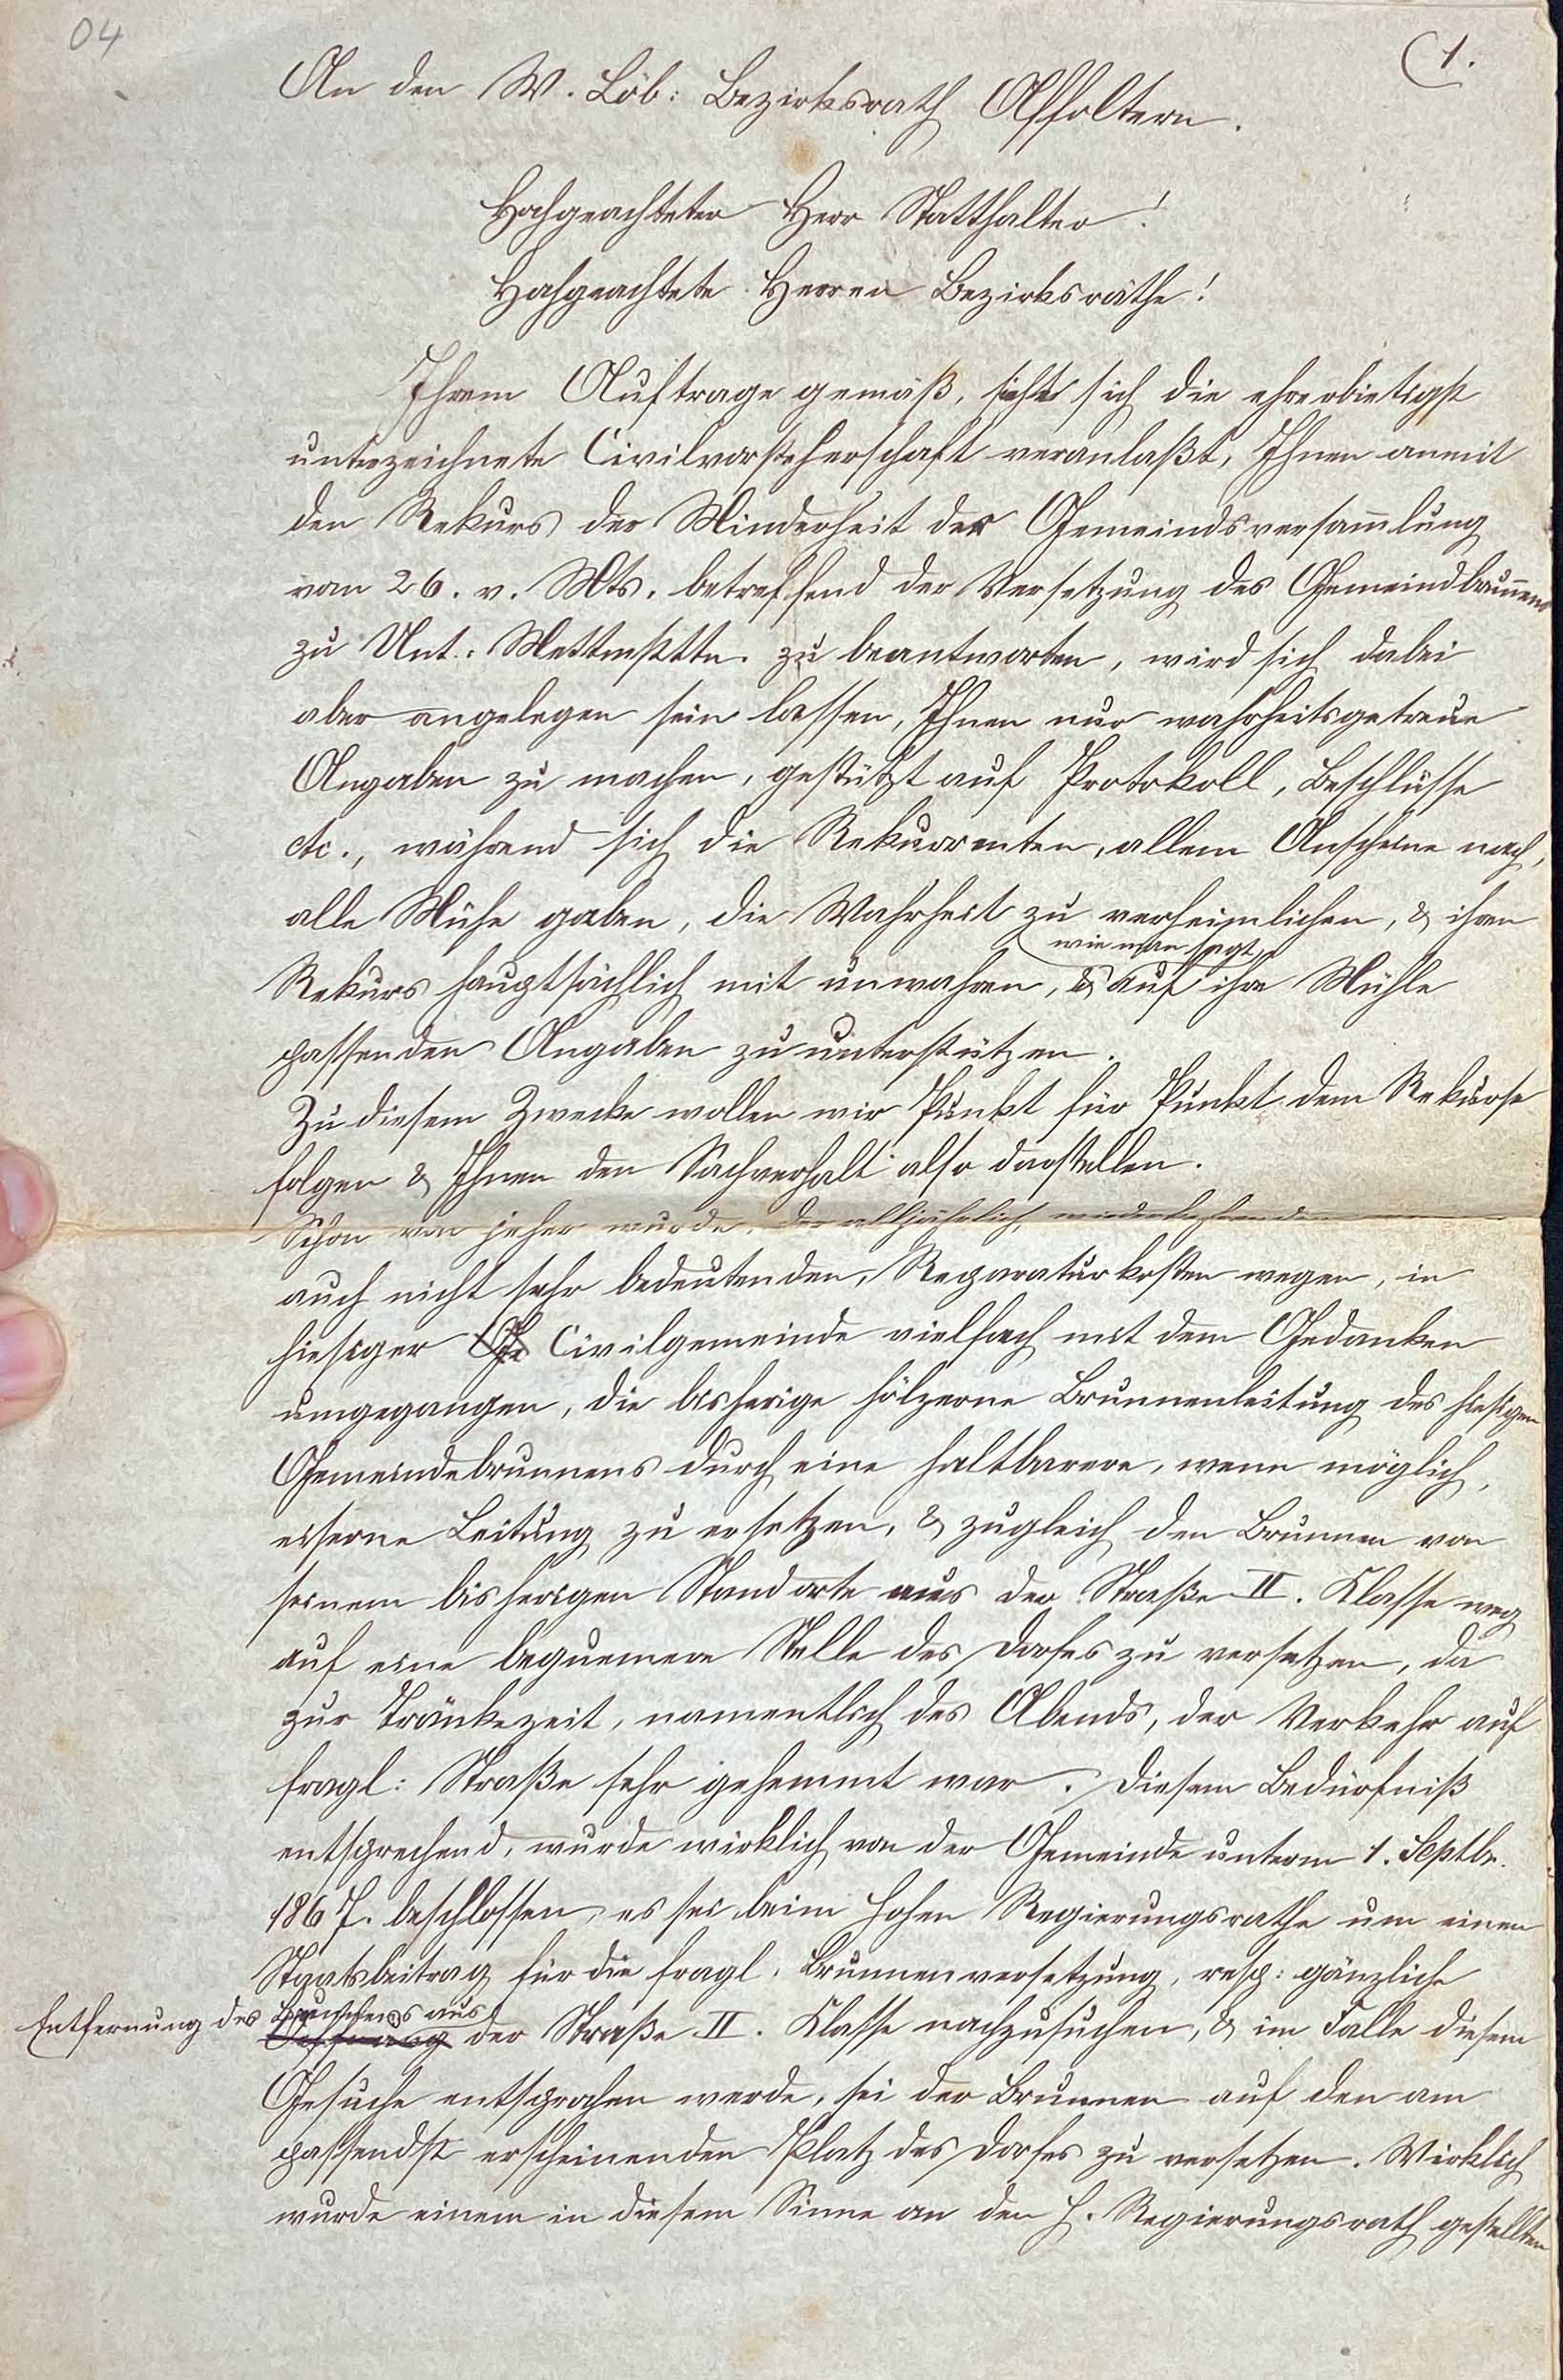 04
(1.
An den W. Löb: Bezirksrath Affoltern.
Hochgeachteter Herr Statthalter!
Hochgeachtete Herren Bezirksräthe!
Ihrem Auftrage gemäß, sieht sich die ehrerbietigst
unterzeichnete Civilvorsteherschaft veranlaßt, Ihnen anmit
den Rekurs der Minderheit der Gemeindsversam̅lung
vom 26. v. Mts. betreffend der Versetzung des Gemeindbrun̅ens
zu Unt. Mettmstttn. zu beantworten, wird sich dabei
aber angelegen sein lassen, Ihnen nur wahrheitsgetreue
Angaben zu machen, gestützt auf Protokoll, Beschlüsse
etc., während sich die Rekurrenten, allem Anscheine nach,
alle Mühe gaben, die Wahrheit zu verheimlichen, & ihren
wie man sagt,
Rekurs hauptsächlich mit unwahren, & auf ihre Mühle
passenden Angaben zu unterstützen.
Zu diesem Zwecke wollen wir Punkt für Punkt dem Rekurse
folgen & Ihnen den Sachverhalt also darstellen.
Schon von jeher wurde, der alljährlich wiederkehrenden
auch nicht sehr bedeutenden, Reparaturkosten wegen, in
hiesiger Ge Civilgemeinde vielfach mit dem Gedanken
umgegangen, die bisherige hölzerne Brunnenleitung des hiesigen
Gemeindebrunnens durch eine haltbarere, wenn möglich,
eiserne Leitung zu ersetzen, & zugleich den Brunnen von
seinem bisherigen Standorte aus der Straße II. Klasse weg
auf eine bequemere Stelle des Dorfes zu versetzen, da
zur Tränkezeit, namentlich des Abends, der Verkehr auf
fragl: Straße sehr gehemmt war. Diesem Bedürfniß
entsprechend, wurde wirklich von der Gemeinde unterm 1. Septbr.
1867. beschlossen, es sei beim hohen Regierungsrathe um einen
Staatsbeitrag für die fragl. Brunnenversetzung, resp: gänzliche
Entfernung des Brunnens aus
der Straße II. Klasse nachzusuchen, & im Falle diesem
Gesuche entsprochen werde, sei der Brunnen auf den am
passendst erscheinenden Platz des Dorfes zu versetzen. Wirklich
wurde einem in diesem Sinne an den h. Regierungsrath gestellten